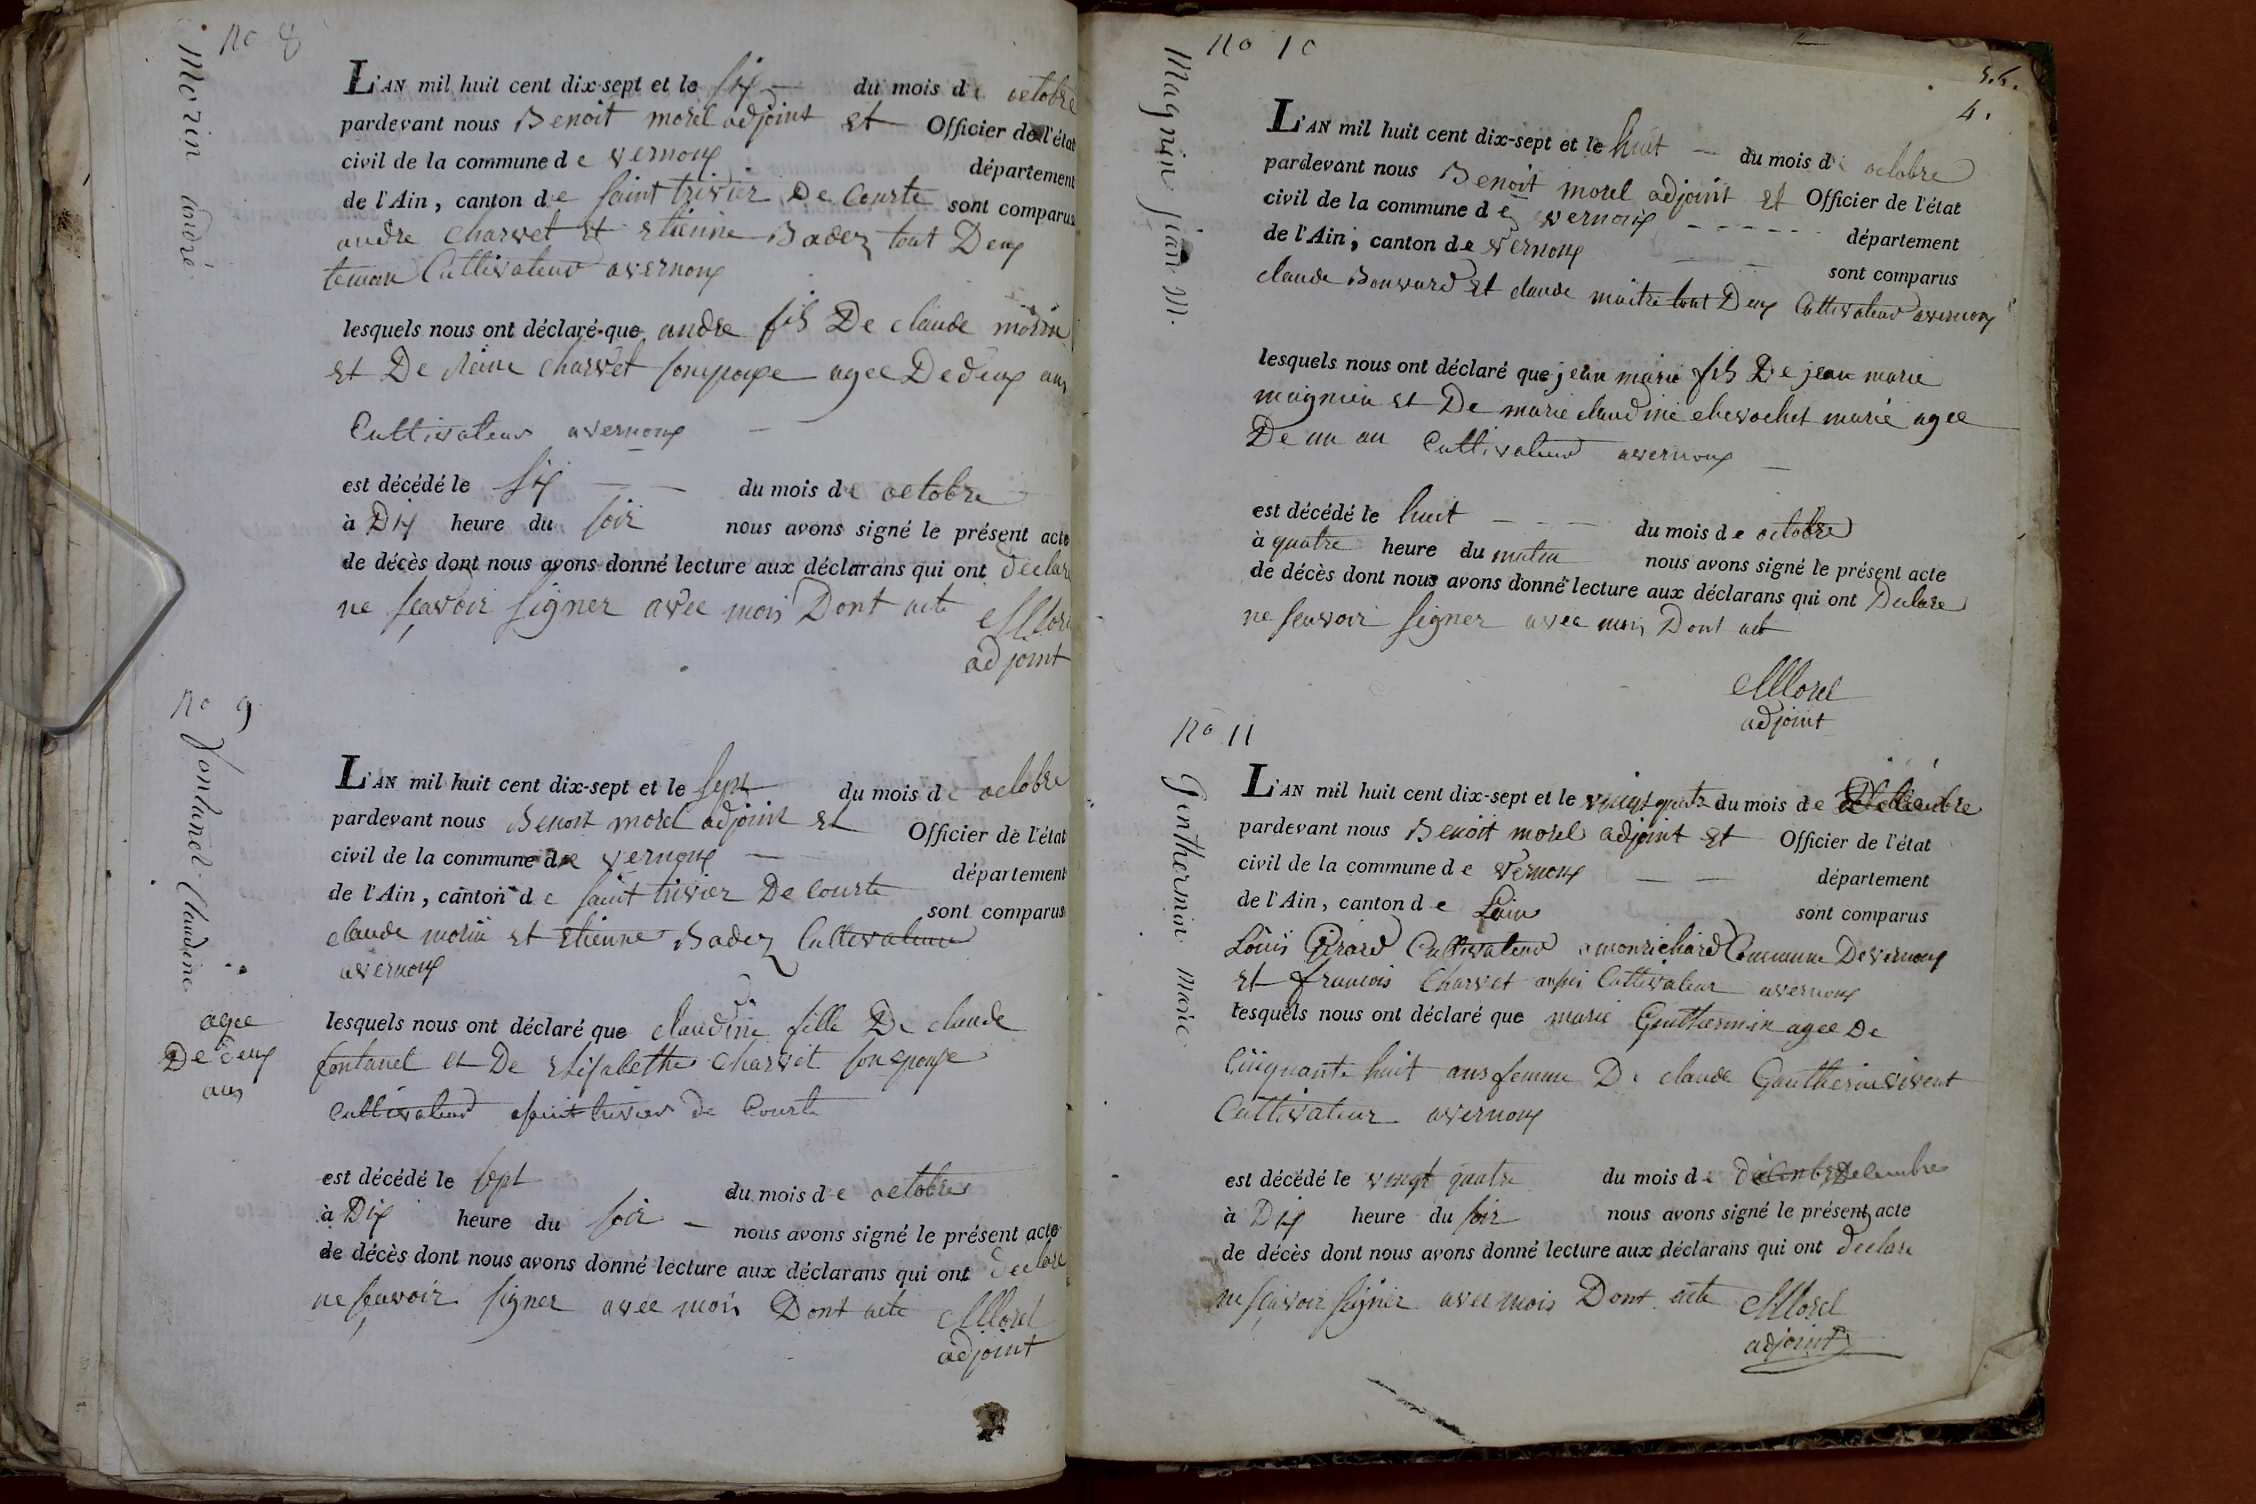 no 8
Morin andré
L'AN mil huit cent dix-sept et le six du mois de octobre
pardevant nous Benoit morel adjoint et Officier de l'état
civil de la commune de vernoux département
de l'Ain, canton de saint trivier De Courte sont comparus
andre Charvet et etienne Badez tout Deux
temoin Cultivateur avernoux
lesquels nous ont déclaré que andre fils De claude morin
et De Reine Charvet son epouse agee De deux ans
Cultivateur avernoux
est décédé le six du mois de octobre
à Dix heure du soir nous avons signé le présent acte
de décès dont nous avons donné lecture aux déclarans qui ont declare
ne scavoir signer avec mois Dont acte Morel
adjoint
no 9
fontanel Claudine
agee
De deux
ans
L'AN mil huit cent dix-sept et le sept du mois de octobre
pardevant nous Benoit morel adjoint et Officier de l'état
civil de la commune de vernoux département
de l'Ain, canton de saint trivier De Courte sont comparus
claude morin et etienne Badez Cultivateur
avernoux
lesquels nous ont déclaré que claudine fille De claude
fontanel et De elisabethe Charvet son epouse
Cultivateur asaint trivier de Courte
est décédé le sept du mois de octobre
à Dix heure du soir nous avons signé le présent acte
de décès dont nous avons donné lecture aux déclarans qui ont declare
ne scavoir signer avec mois Dont acte Morel
adjoint
no 10
4.
Magnin jean M.
L'AN mil huit cent dix-sept et le huit du mois de octobre
pardevant nous Benoit morel adjoint et Officier de l'état
civil de la commune de vernoux département
de l'Ain, canton de vernoux sont comparus
claude Bouvard et claude maitre tout Deux Cultivateur avernoux
lesquels nous ont déclaré que jean marie fils De jean marie
magnien et De marie claudine chevrochet marié agee
De un an Cultivateur avernoux
est décédé le huit du mois de octobre
à quatre heure du matin nous avons signé le présent acte
de décès dont nous avons donné lecture aux déclarans qui ont Declare
ne scavoir signer avec mois Dont act
Morel
adjoint
no 11
Ginthermin marie
L'AN mil huit cent dix-sept et le vingt quatre du mois de
pardevant nous Benoit morel adjoint et Officier de l'état
civil de la commune de vernoux département
de l'Ain, canton de Lain sont comparus
Louis Girard Cultivateur amonrichard Commune De vernoux
et francois Charvet aussi Cultivateur avernoux
lesquels nous ont déclaré que marie Ginthermin agee De
Cinquante huit ans femme De claude Gautherin vivent
Cultivateur avernoux
est décédé le vingt quatre du mois de Decembre
à Dix heure du soir nous avons signé le présent acte
de décès dont nous avons donné lecture aux déclarans qui ont declare
ne scavoir signer avec mois Dont acte Morel
adjoint